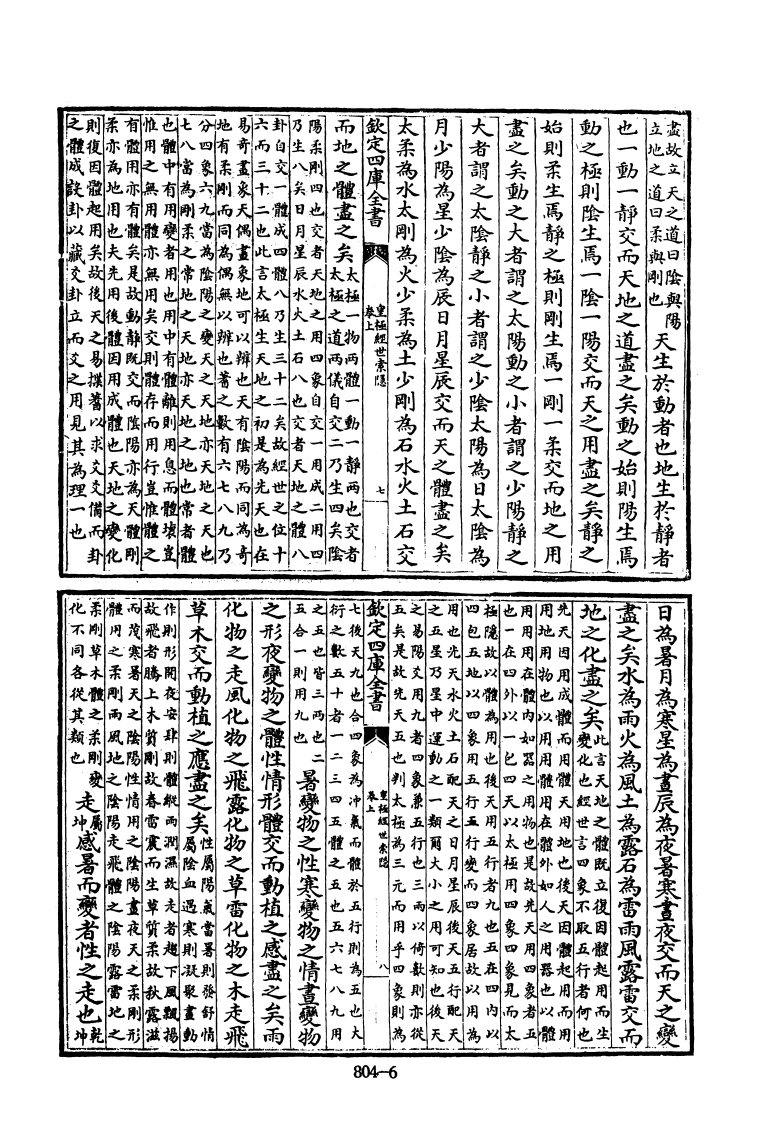 盡故立天之道曰陰與陽
立地之道曰柔與剛也
天生於動者也地生於靜者
也一動一靜交而天地之道盡之矣動之始則陽生焉
動之極則陰生焉一陰一陽交而天之用盡之矣靜之
始則柔生焉靜之極則剛生焉一剛一柔交而地之用
盡之矣動之大者謂之太陽動之小者謂之少陽靜之
大者謂之太陰靜之小者謂之少陰太陽為日太陰為
月少陽為星少陰為辰日月星辰交而天之體盡之矣
太柔為水太剛為火少柔為土少剛為石水火土石交
欽定四庫全書
皇極經世索隱
卷上
七
而地之體盡之矣
太極一物兩體一動一靜兩也交者
太極之道兩儀自交二乃生四矣陰
陽柔剛四也交者天地之用四象自交一用成二用四
乃生八矣日月星辰水火土石八也交者天地之體八
卦自交一體成四體八乃生三十二矣故經世之位十
六而三十二也此言太極生天地之初是為先天也在
易奇畫象天偶畫象地可以辨也天有陰陽而同為奇
地有柔剛而同為偶無以辨也蓍之數有六七八九乃
分四象六九當為陰陽之變天之天地亦天地之天也
七八當為剛柔之常地之天地亦天地之地也常者體
也體中有用變者用也用中有體離則用息而體壞豈
惟用之無用體亦無用矣交則體存而用行豈惟體之
有體用亦有體矣是故動靜既交而陰陽亦為天體剛
柔亦為地用也夫先用後體因用成體也天地之變化
則復因體起用矣故後天之易揲蓍以求爻爻備而卦
之體成設卦以藏爻卦立而爻之用見其為理一也
日為暑月為寒星為晝辰為夜暑寒晝夜交而天之變
盡之矣水為雨火為風土為露石為雷雨風露雷交而
地之化盡之矣
此言天地之體既立復因體起用而生
變化也經世言四象不取五行者何也
先天因用成體而用體天用地也後天因體起用而用
用地用物也以用用體用在體外如人之用器也以體
用用用在體內如器之用物也是故先天用四象者五
也一在四外以一包四天以太極用四象四象見而太
極隱故以體為用也後天用五行者九也五在四内以
四包五地以四象用五行五行變而四象居故以用為
用也先天水火土石配天之日月星辰後天五行配天
之五星乃星中運動之一類爾大小之用可知也後天
之易陽爻用九者四象兼五行也三兩以倚數則亦從
五矣是故先天五也判太極為三元而用乎四象則為
欽定四庫全書
皇極經世索隱
卷上
八
七後天九也合四象為沖氣而體於五行則為五也大
衍之數五十者一二三四五體之五也五六七八九用
之五也皆三兩也二
五合一則用九也
暑變物之性寒變物之情晝變物
之形夜變物之體性情形體交而動植之感盡之矣雨
化物之走風化物之飛露化物之草雷化物之木走飛
草木交而動植之應盡之矣
性屬陽氣當暑則發舒情
屬陰血遇寒則凝聚晝動
作則形開夜安肆則體縱雨潤濕故走者趨下風飄揚
故飛者騰上木質剛故春雷震而生草質柔故秋露滋
而茂寒暑天之陰陽性情用之陰陽晝夜天之柔剛形
體用之柔剛雨風地之陰陽走飛體之陰陽露雷地之
柔剛草木體之柔剛變
化不同各從其類也
走
屬
坤
感暑而變者性之走也
乾
坤
804-6